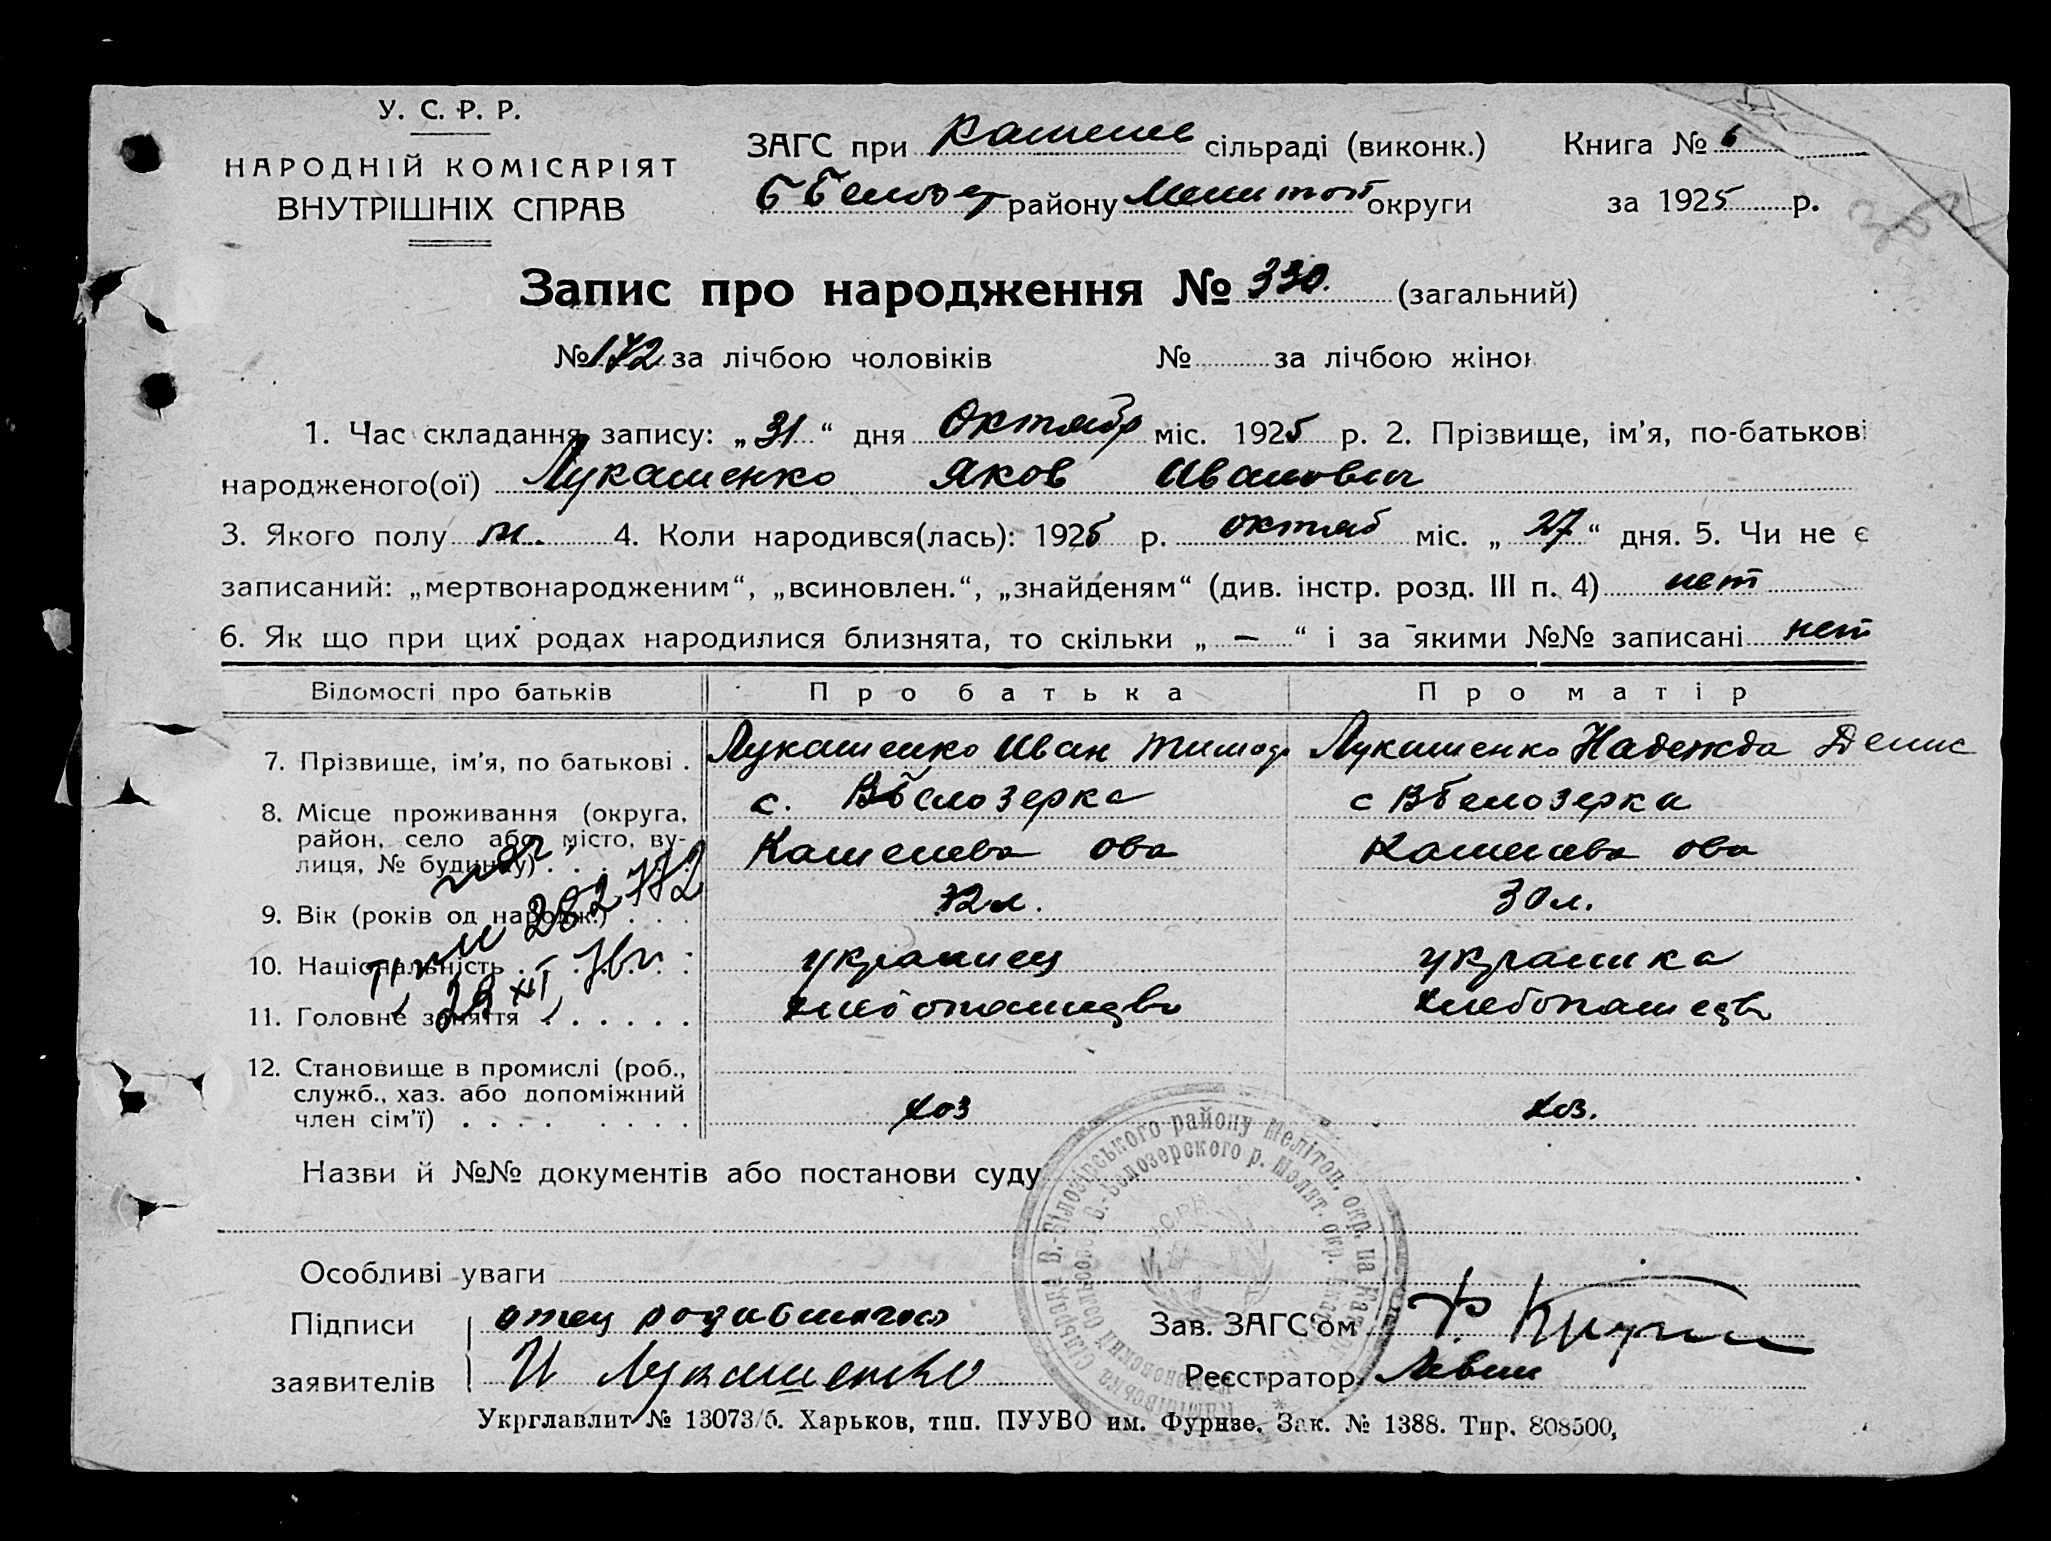 У. С. Р. Р.
НАРОДНІЙ КОМІСАРІЯТ
ВНУТРІШНІХ СПРАВ
ЗАГС при сільраді (виконк.)
району Мелитоп округи
Книга № 6
за 1925 р.
Запис про народження № 330. (загальний)
№ 172 за лічбою чоловіків № за лічбою жінок
1. Час складання запису: „ 31 “ дня Октябр міс. 1925 р. 2. Прізвище, ім'я, по-батькові
народженого(ої) Лукашенко Яков Иванович
3. Якого полу м. 4. Коли народився(лась): 1925 р. октяб міс. „ 27 “ дня. 5. Чи не є
записаний: „мертвонародженим“, „всиновлен.“, „знайденям“ (див. інстр. розд. III п. 4) нет
6. Як що при цих родах народилися близнята, то скільки „ — “ і за якими №№ записані нет
Відомості про батьків Про батька Про матір
7. Прізвище, ім'я, по батькові . Лукашенко Иван Тимоф Лукашенко Надежда Денис
8. Місце проживання (округа, с. Вбелозерка с Вбелозерка
район, село або місто, ву-
лиця, № будинку) . . . . . ова ова
9. Вік (років од народж.) . . . 30 л.
10. Національність . . . . . украинец украинка
11. Головне заняття . . . . . хлебопашедво хлебопашедво
12. Становище в промислі (роб.,
служб., хаз. або допоміжний
член сім'ї) . . . . . . . . хоз хоз.
Назви й №№ документів або постанови суду
Особливі уваги
Підписи отец родившагося
заявителів И Лукашенко
Зав. ЗАГС'ом
Реєстратор Левин
Укрглавлит № 13073/б. Харьков, тип. ПУУВО им. Фурнзе. Зак. № 1388. Тир. 808500,
282772
29 XII 76 г.
В.-Білозірського району Мелітоп. окр. на Кат
В.-Белозерского р. Мелит. окр.